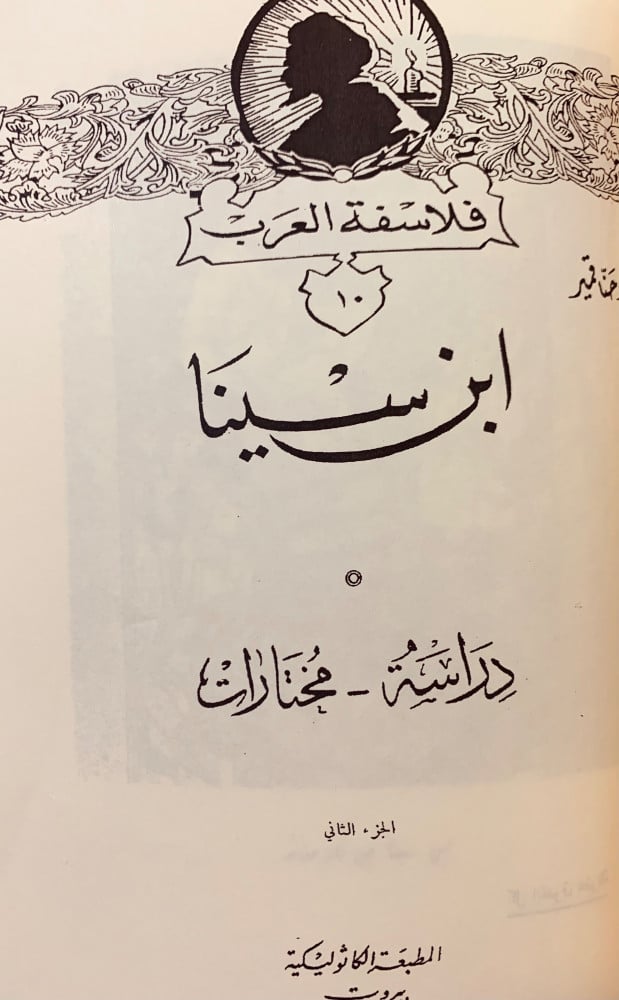 فلاسفة العَرَبْ
١٠
حنّا قمير
ابن سْينَا
دِرَاسَةُ - مُختَارَاتْ
الجزء الثاني
المطبعَة الكاثوليكية
بيروت